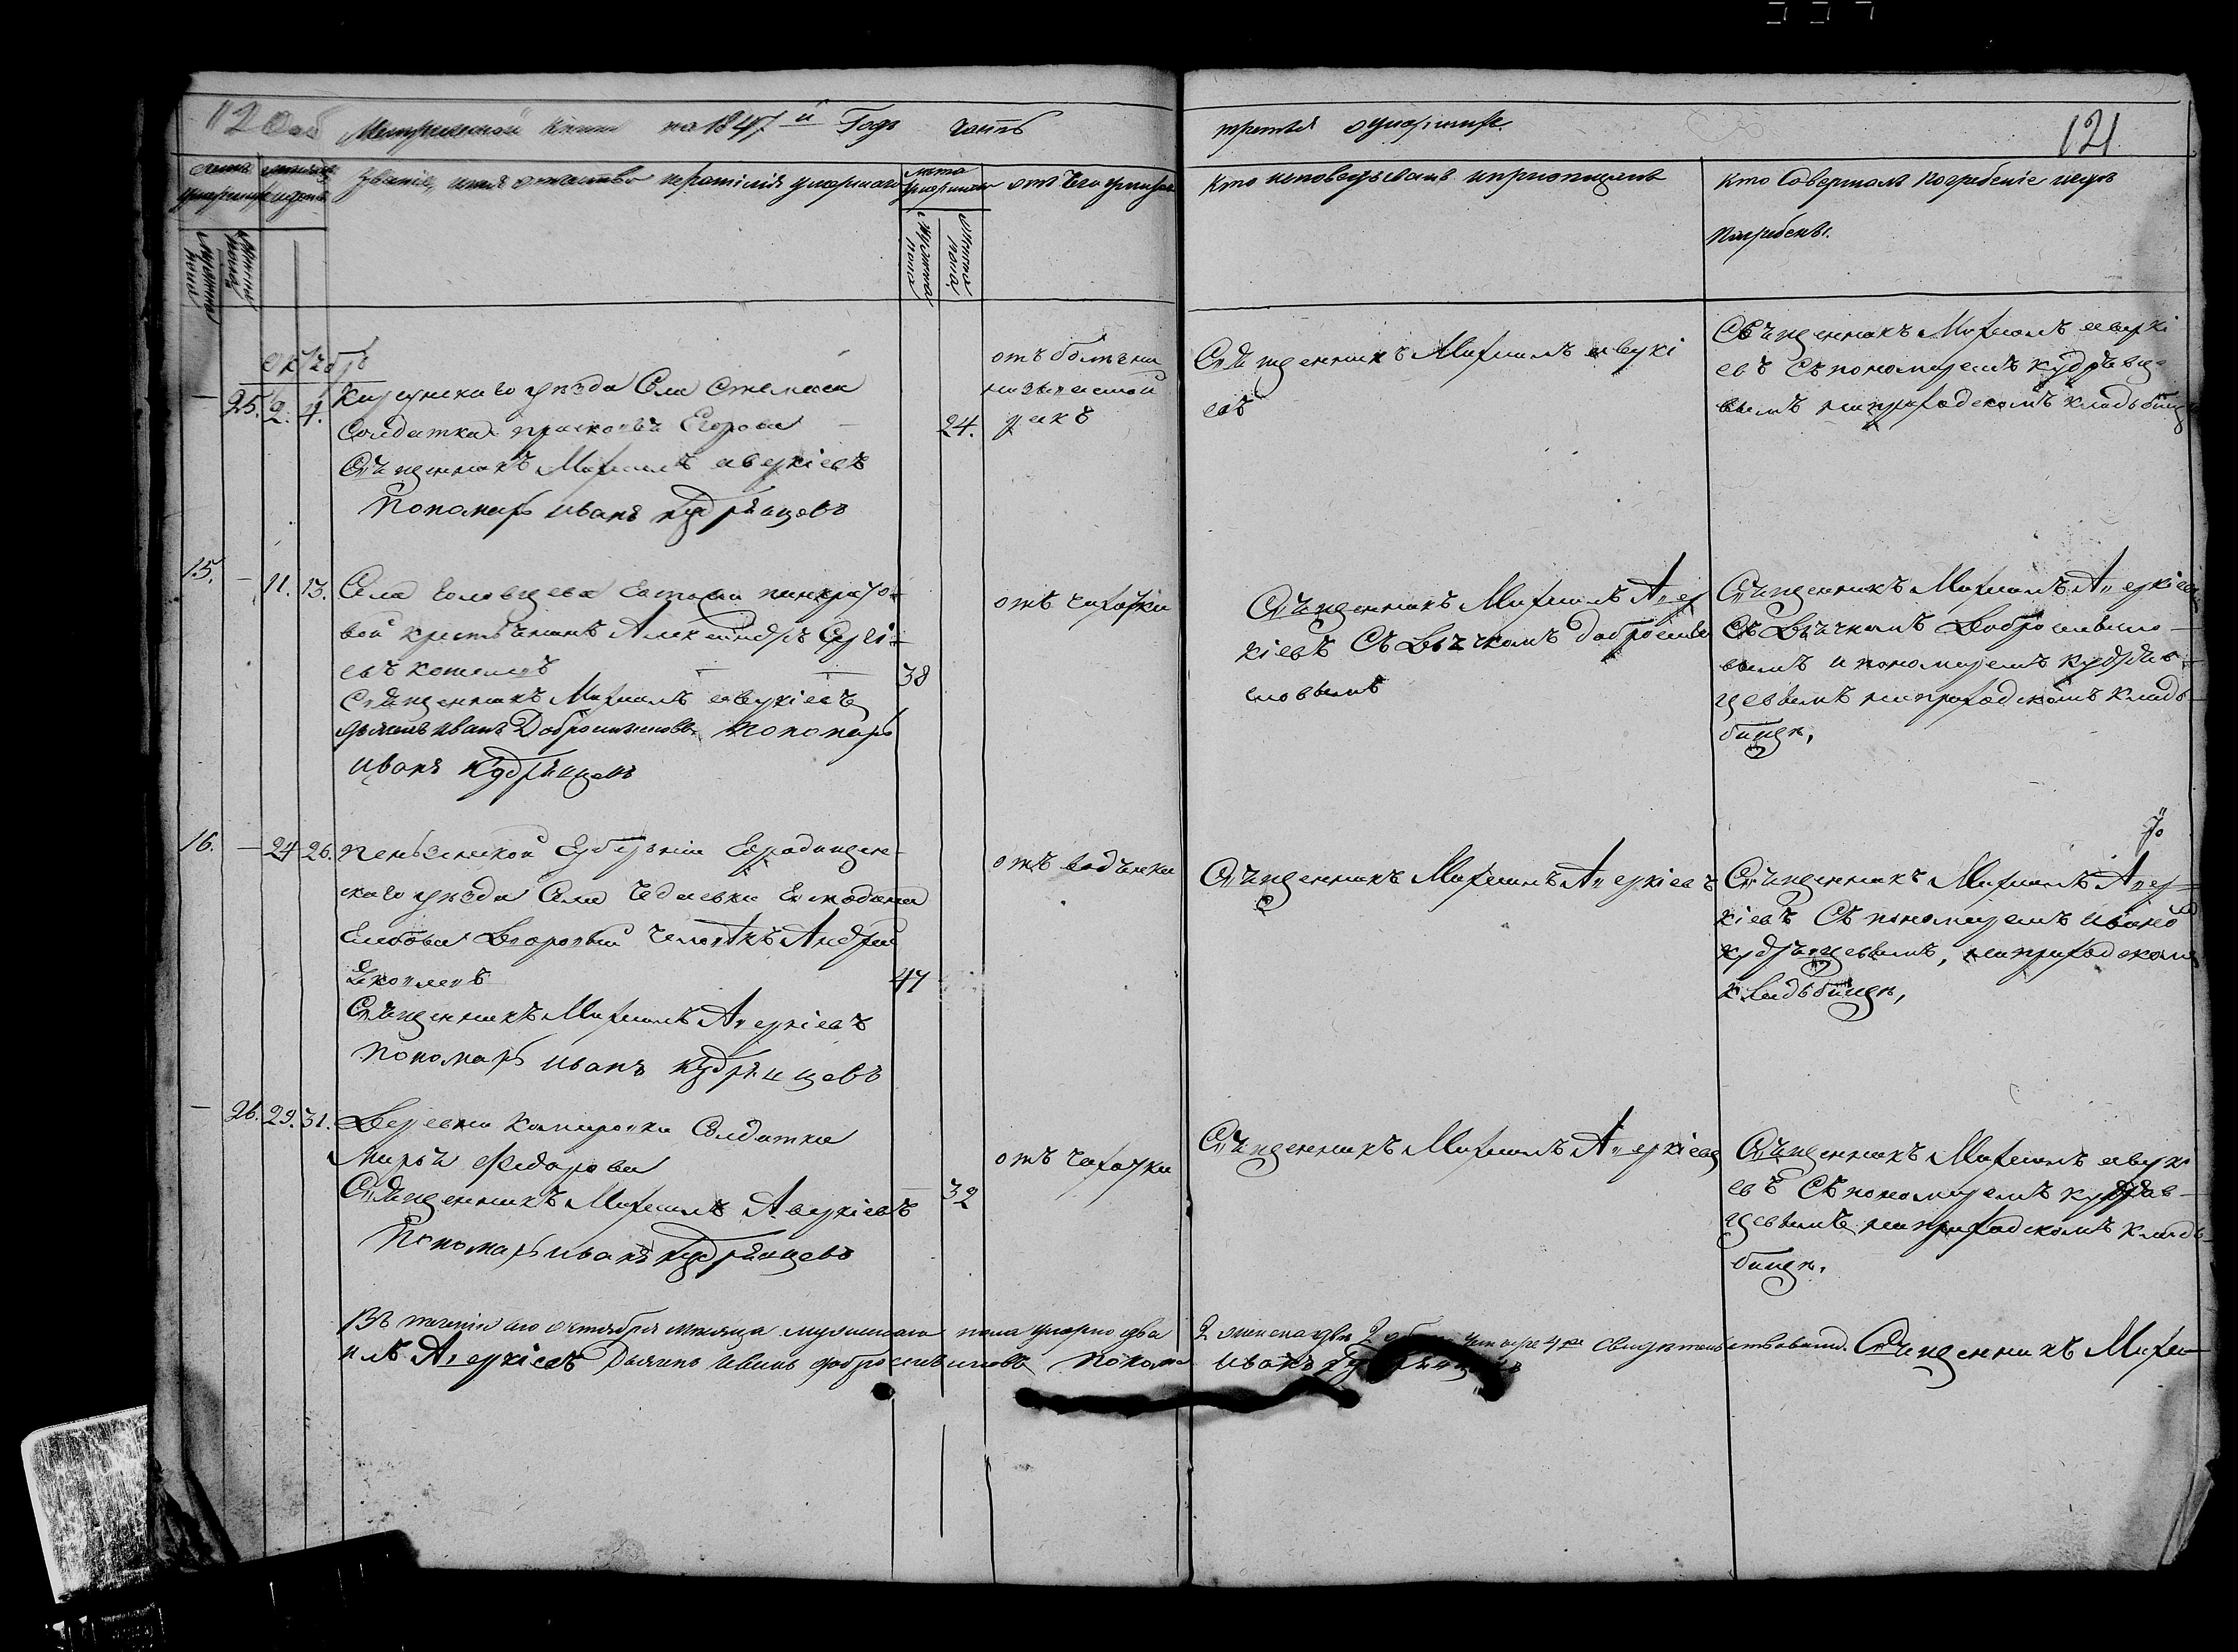 120об Метрической книги на 1847.й Годъ часть третья о умершихъ. 121
Званіе, имя отчество и фамилія умершаго
лѣта умершаго
отъ чего умеръ
Кто исповедывалъ и пріопщалъ
Кто Совершалъ погребеніе и где
погребены.
мужеска пола
женска пола
мужеска пола
женска пола
Октябрь
— 25. 2. 4.
уѣзда Села Стемаса
Солдатка Егорова — 24.
Священникъ Михаилъ авѣркіевъ
Пономарь иванъ кудрявцевъ
отъ болѣзни
Священникъ Михаилъ аверкі
евъ
Священникъ Михаилъ аверкі
евъ Съ пономаремъ кудрявце
вымъ на приходскомъ кладбищѣ
15. — 11. 13. Села
вой крестьянинъ Александръ Сергі
евъ — — 38
Священникъ Михаилъ аверкіевъ
дьячекъ иванъ Добросмысловъ Пономарь
иванъ кудрявцевъ
отъ чахотки
Священникъ Михаилъ Авер
кіевъ Съ Дьячкомъ добросмы
словымъ
Священникъ Михаилъ Аверкіевъ
Съ Дьячкомъ Добросмысло
вымъ и пономаремъ кудряв
цевымъ на приходскомъ клад
бищѣ,
16. — 24 26. пензенской Губерніи Городищен
скаго уѣзда Села
Дворовый человѣкъ Андрей
47
Священникъ Михаилъ Аверкіевъ
пономарь иванъ кудрявцевъ
отъ водянки
Священникъ Михаилъ Аверкіевъ
Священникъ Михаилъ Авер
кіевъ Съ пономаремъ ивано
кудрявцевымъ, на приходскомъ
кладбищѣ,
— 26. 29. 31. Деревни Солдатка
Марья Федорова
Священникъ Михаилъ Аверкіевъ — 32
Пономарь иванъ кудрявцевъ
отъ чахотки
Священникъ Михаилъ Аверкіевъ
Священникъ Михаилъ аверкі
евъ Съ пономаремъ кудряв
цевымъ на приходскомъ клад
бищѣ.
Въ теченіи сего октября месяца мужескаго пола умерло два 2 женска двѣ 2 Свидетельствовали. Священникъ Миха
илъ Аверкіевъ Дьячекъ иванъ добросмысловъ Пономарь иванъ кудрявцевъ